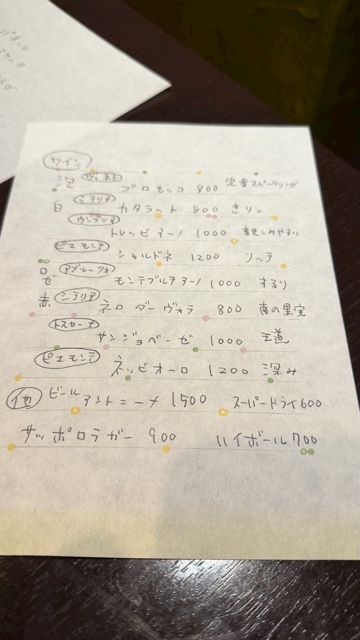 ワイン
泡 ヴェネト
プロセッコ 800 定番スパークリング
白 シチリア
カタラット 800 きりっ
ウンブリア
トレッビアーノ 1000 親しみやすい
ピエモンテ
シャルドネ 1200 リッチ
ロゼ アブルッツォ
モンテプルチアーノ 1000 するり
赤 シチリア
ネロ ダーヴォラ 800 南の果実
トスカーナ
サンジョベーゼ 1000 王道
ピエモンテ
ネッビオーロ 1200 深み
他 ビール
アントニーナ 1500 スーパードライ 600
サッポロラガー 900 ハイボール 700